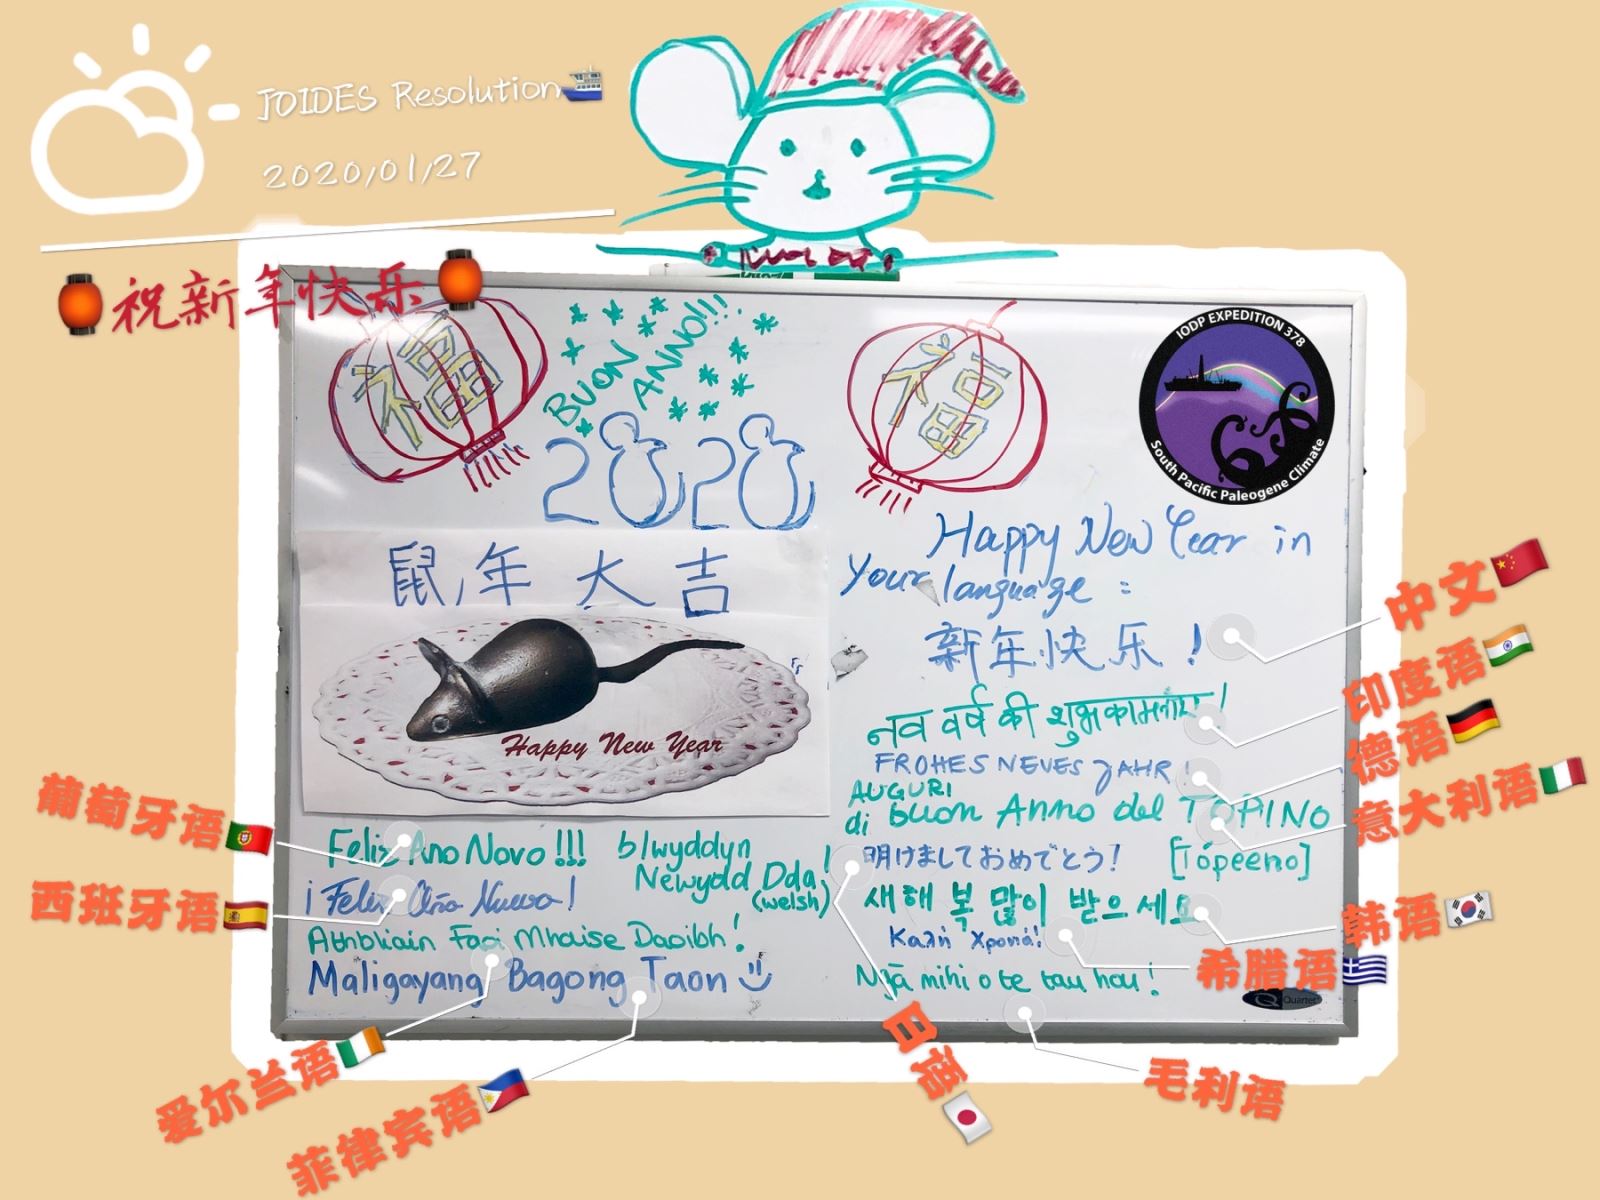 JOIDES Resolution
2020/01/27
祝新年快乐
福
BUON
ANNO!!!
2020
福
IODP EXPEDITION 378
South Pacific Paleogene Climate
鼠年大吉
Happy New Year
Happy New Year in
Your language:
新年快乐!
नव वर्ष की शुभकामनाएं!
FROHES NEUES JAHR!
AUGURI
di buon Anno del TOPINO
[Tópeeno]
明けましておめでとう!
새해 복 많이 받으세요
Καλή Χρονιά!
Ngā mihi o te tau hou!
Feliz Ano Novo!!!
blwyddyn
Newydd Dda!
(welsh)
¡Feliz Año Nuevo!
Athbhliain Faoi Mhaise Daoibh!
Maligayang Bagong Taon
Quartet
中文
印度语
德语
意大利语
韩语
希腊语
毛利语
日语
葡萄牙语
西班牙语
爱尔兰语
菲律宾语